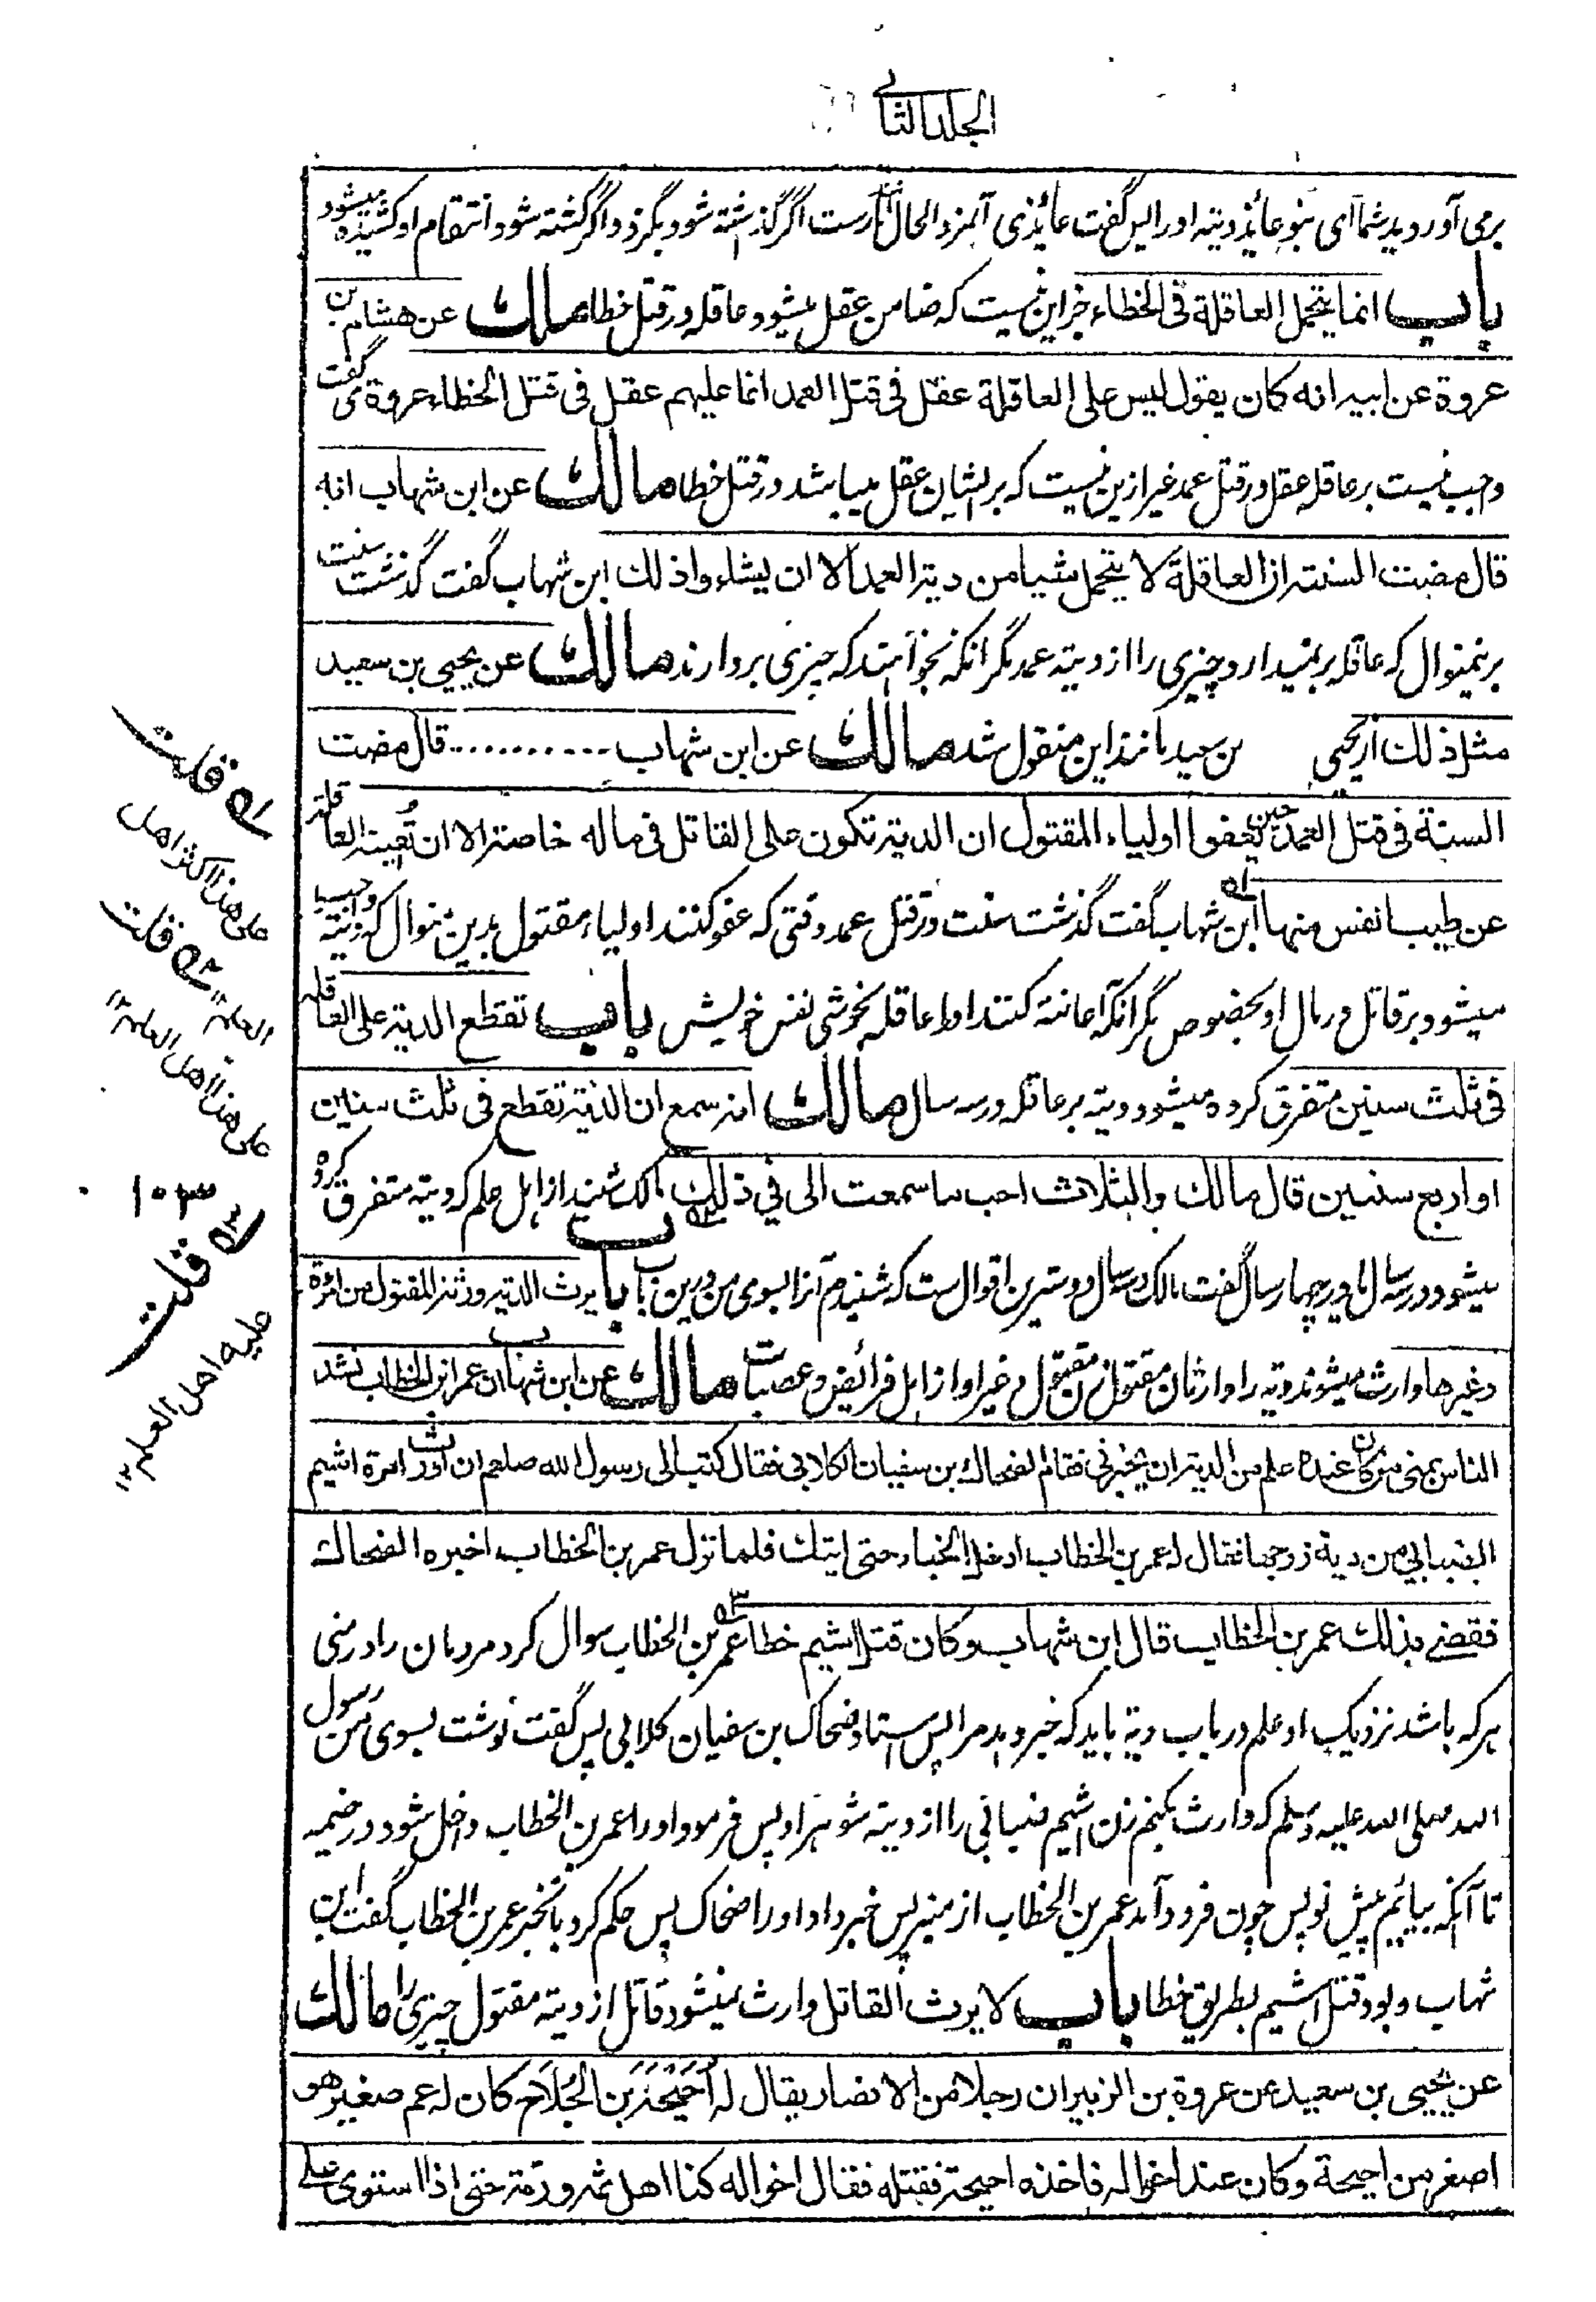 الجلد الثانی
برمی آوردید شما ای بنو عائذ دیته او را پس گفت عائذی آنمرد الحال مارست اگر گذاشته شود بگزد و اگر کشته شود انتقام او کشیده میشود
باب انما یتحمل العاقلة فی الخطاء جز این نیست که ضامن عقل میشود عاقله در قتل خطا مالك عن هشام بن
عروة عن ابیه انه كان یقول لیس علی العاقلة عقل فی قتل العمد انما علیهم عقل فی قتل الخطاء عروة می گفت
واجب نیست بر عاقله عقل در قتل عمد غیر ازین نیست که بر ایشان عقل میباشد در قتل خطا مالك عن ابن شهاب انه
قال مضت السنة ان العاقلة لا یتحمل شیا من دیة العمد الا ان یشاء واذلك ابن شهاب گفت گذشت سنت
برینمنوال که عاقله بر نمیدارد چیزی را از دیته عمد مگر انکه بخواهند که چیزی بردارند مالك عن یحیی بن سعید
مثل ذلك از یحیی بن سعید مانند این منقول شد مالك عن ابن شهاب ........... قال مضت
السنة فی قتل العمد حین یعفوا اولیاء المقتول ان الدیة تكون علی القاتل فی ماله خاصة الا ان تعینه العاقلة
عن طیب نفس منها ابن شهاب گفت گذشت سنت در قتل عمد وقتی که عفو کنند اولیاء مقتول برین منوال که دیته واجب
میشود بر قاتل در مال او بخصوص مگر آنکه اعانة کنند او را عاقله بخوشی نفس خویش باب تقطع الدیة علی العاقله
فی ثلث سنین متفرق کرده میشود دیته بر عاقله در سه سال مالك انه سمع ان الدیة تقطع فی ثلث سنین
او اربع سنین قال مالك والثلاث احب ما سمعت الی فی ذلك مالک شنید از اهل علم که دیته متفرق کرده
میشود در سه سال یا در چهار سال گفت مالک و سه سال دوسترین اقوال ست که شنیده ام آنرا بسوی من درین باب باب یرث الدیة ورثة المقتول من امرأة
وغیرها وارث میشوند دیته را وارثان مقتول از زن مقتول و غیر او از اهل فرائض و عصبات مالك عن ابن شهاب ان عمر ابن الخطاب نشد
الناس بمنی من كان عنده علم من الدیة ان یخبرنی فقام الضحاك بن سفیان الكلابی فقال كتب الی رسول الله صلعم ان اورث امرة اشیم
الضبابی من دیة زوجها فقال له عمر بن الخطاب ادخل الخباء حتی اتیك فلما نزل عمر بن الخطاب اخبره الضحاك
فقضی بذلك عمر بن الخطاب قال ابن شهاب وكان قتل اشیم خطا عمر بن الخطاب سوال کرد مردمان را در منی
هر که باشد نزدیک او علم در باب دیة باید که خبر دهد مرا پس استاد ضحاک بن سفیان کلابی پس گفت نوشت بسوی من رسول
الله صلی الله علیه وسلم که وارث بکنم زن اشیم ضبابی را از دیته شوهر او پس فرمود او را عمر بن الخطاب داخل شود در خیمه
تا آنکه بیایم پیش تو پس چون فرود آمد عمر بن الخطاب از منبر پس خبر داد او را ضحاک پس حکم کرد بانخبر عمر بن الخطاب گفت ابن
شهاب و بود قتل اشیم بطریق خطا باب لا یرث القاتل وارث نمیشود قاتل از دیته مقتول چیزی را مالك
عن یحیی بن سعید عن عروة بن الزبیر ان رجلا من الانصار یقال له اُحَیْحَةَ بن الجُلَاح كان له عم صغیر هو
اصغر من احیحة وكان عند اخواله فاخذه احیحة فقتله فقال اخواله كنا اهل ثمه ورمه حتی اذا استوی علی
ا۵ قلت
علی هذا اكثر اهل
العلم ۱۲
۲۵ قلت
علی هذا اهل العلم ۱۲
۱۰۳
۳۵ قلت
علیه اهل العلم ۱۲